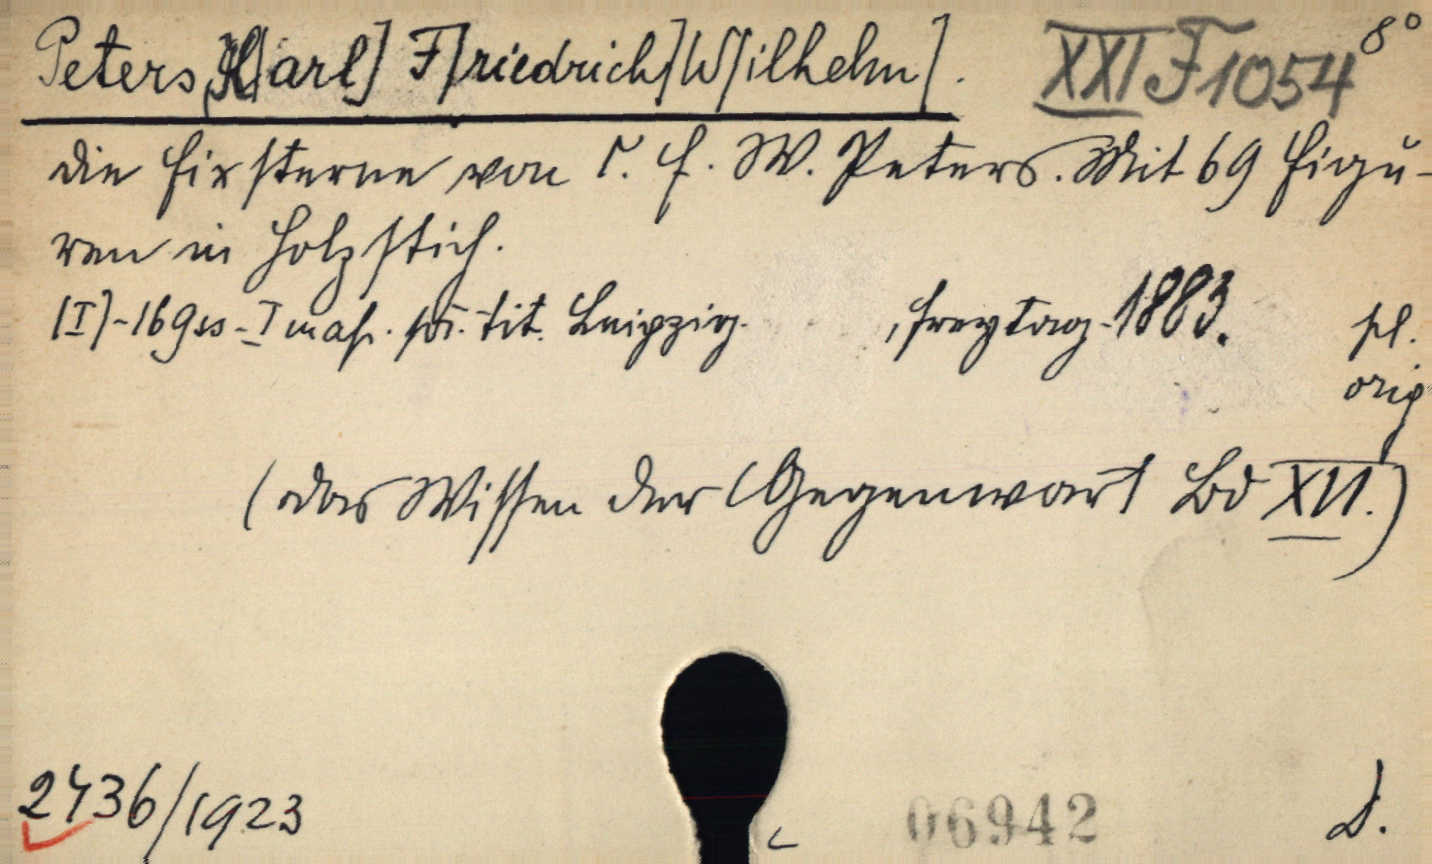 Peters, K[arl] F[riedrich] W[ilhelm].
XXI F 1054 8°
Die Fixsterne von C. F. W. Peters. Mit 69 Figu-
ren in Holzstich.
[I]-169 ss - I Leipzig. , Freytag. 1883.
pl.
orig
(Das Wissen der Gegenwart Bd XVI.)
2436/1923
06942
D.